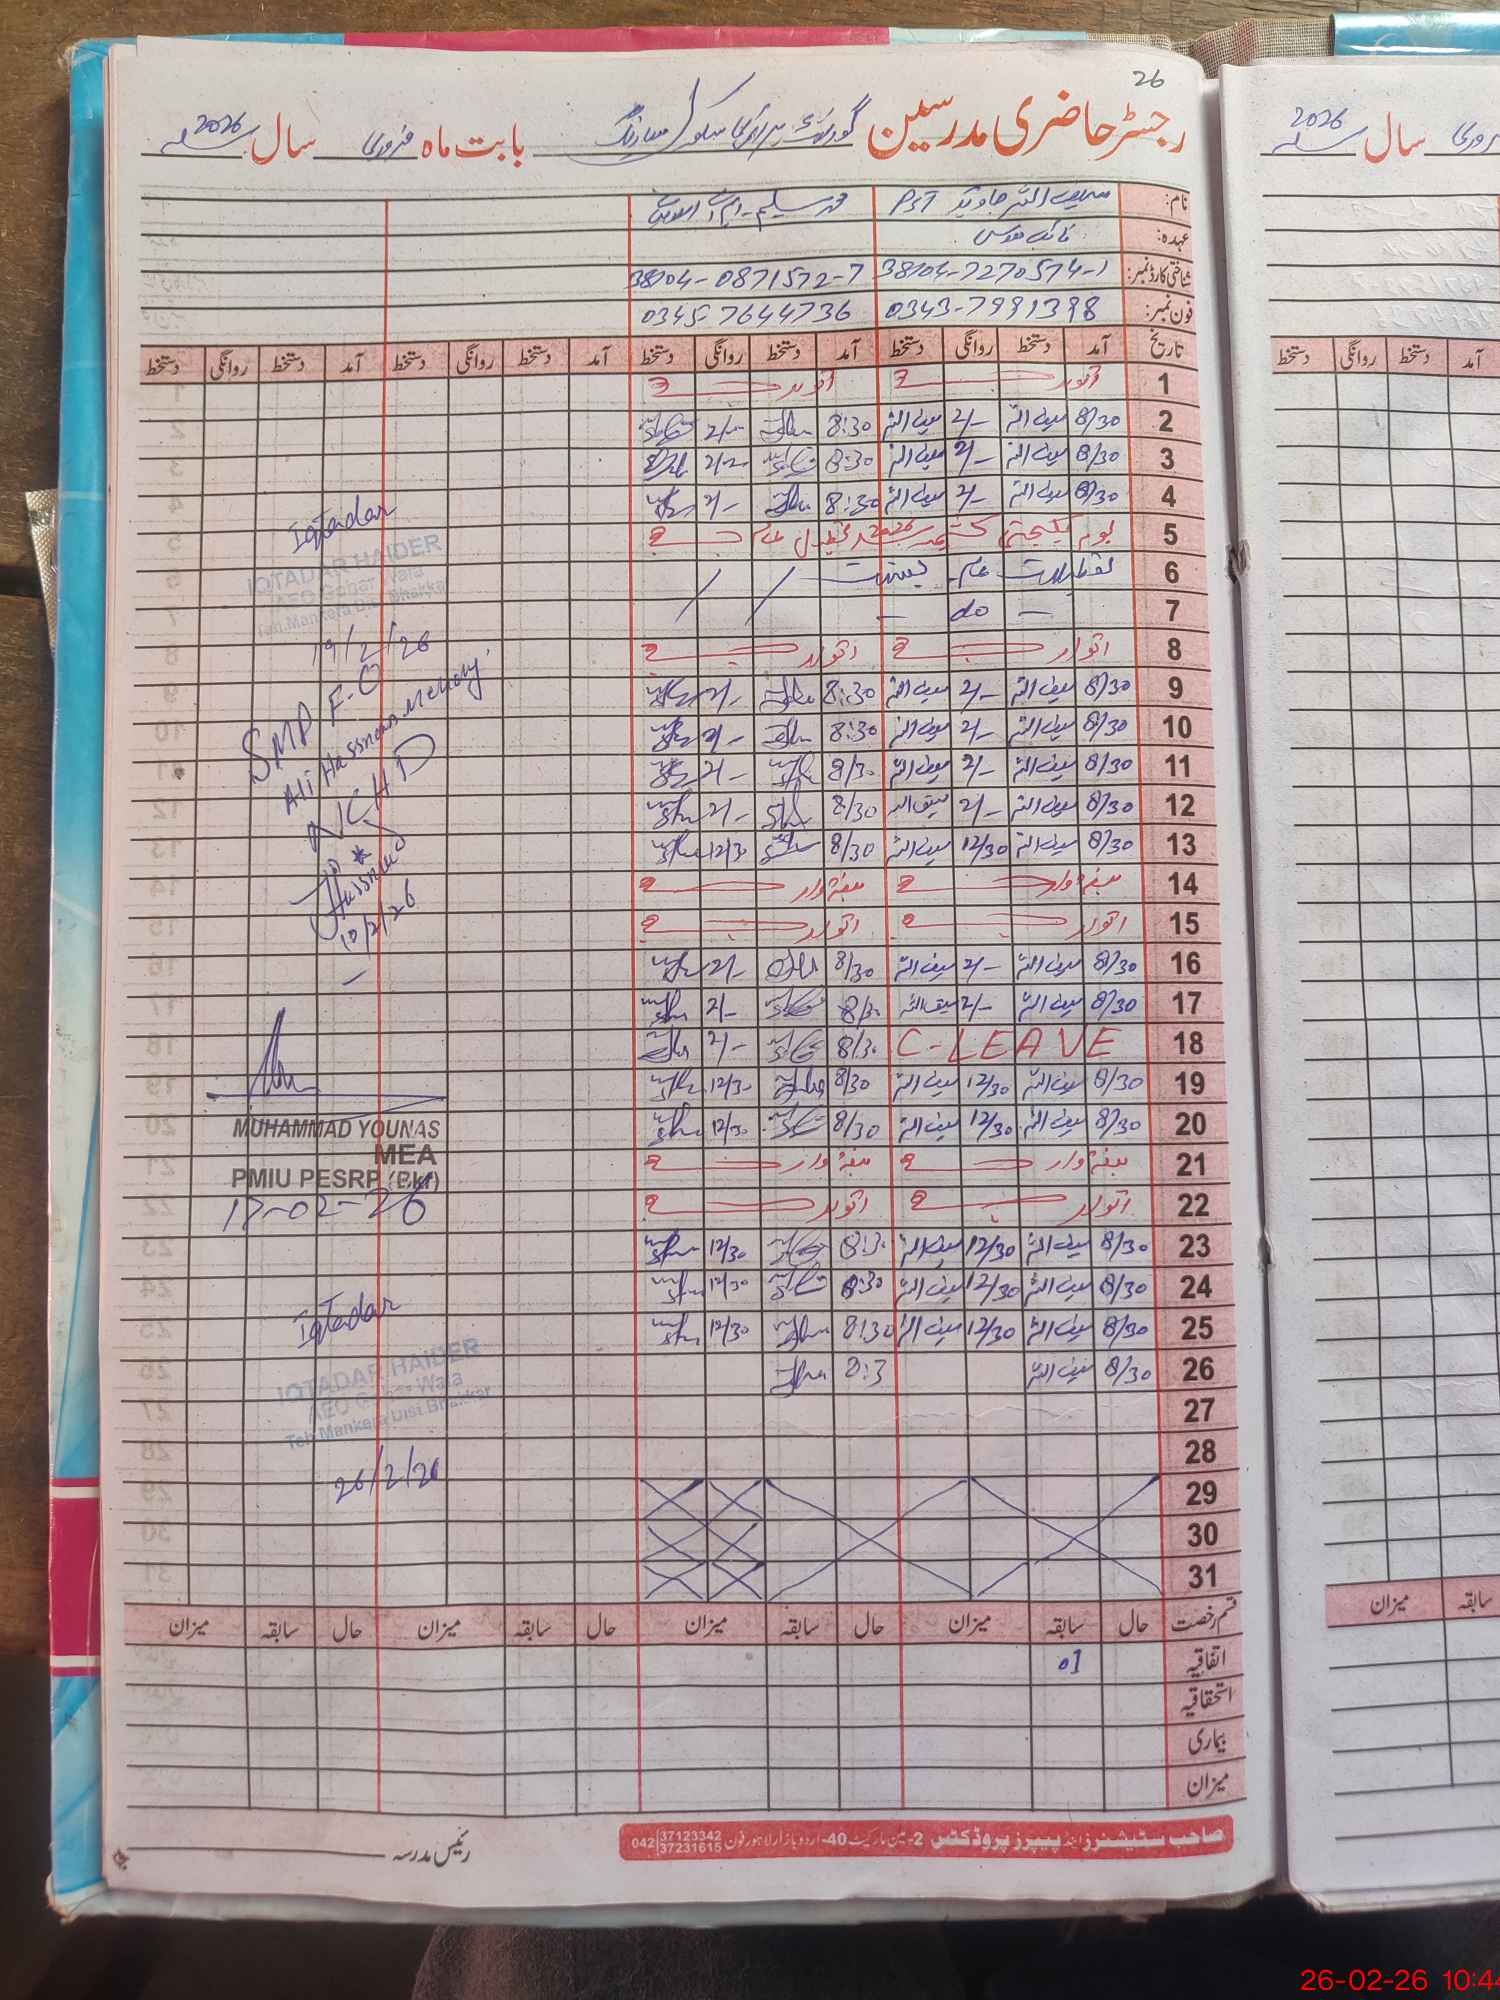 26
رجسٹر حاضری مدرسین گورنمنٹ پرائمری سکول بابت ماہ فروری سال 2026
نام: سیف اللہ جاوید PST محمد سلیم
عہدہ:
شناختی کارڈ نمبر: 38104-7270574-1 38104-0871572-7
فون نمبر: 0343-7991398 0345-7644736
تاریخ آمد دستخط روانگی دستخط آمد دستخط روانگی دستخط آمد دستخط روانگی دستخط آمد دستخط روانگی دستخط
1 اتوار اتوار
2 8/30 سیف اللہ 2/- سیف اللہ 8:30 2/-
3 8/30 سیف اللہ 2/- سیف اللہ 8:30 2/-
4 8/30 سیف اللہ 2/- سیف اللہ 8:30 2/-
5 یوم یکجہتی کشمیر
6 تعطیلات عام بسنت
7 - do -
8 اتوار اتوار
9 8/30 سیف اللہ 2/- سیف اللہ 8:30 2/-
10 8/30 سیف اللہ 2/- سیف اللہ 8:30 2/-
11 8/30 سیف اللہ 2/- سیف اللہ 8/30 2/-
12 8/30 سیف اللہ 2/- سیف اللہ 8/30 2/-
13 8/30 سیف اللہ 12/30 سیف اللہ 8/30 12/30
14 ہفتہ وار ہفتہ وار
15 اتوار اتوار
16 8/30 سیف اللہ 2/- سیف اللہ 8/30 2/-
17 8/30 سیف اللہ 2/- سیف اللہ 8/30 2/-
18 C-LEAVE 8/30 2/-
19 8/30 سیف اللہ 12/30 سیف اللہ 8/30 12/30
20 8/30 سیف اللہ 12/30 سیف اللہ 8/30 12/30
21 ہفتہ وار ہفتہ وار
22 اتوار اتوار
23 8/30 سیف اللہ 12/30 سیف اللہ 8:30 12/30
24 8/30 سیف اللہ 12/30 سیف اللہ 8:30 12/30
25 8/30 سیف اللہ 12/30 سیف اللہ 8:30 12/30
26 8/30 سیف اللہ 8:3
27
28
29
30
31
قسم رخصت حال سابقہ میزان حال سابقہ میزان حال سابقہ میزان حال سابقہ میزان
اتفاقیہ 01
استحقاقیہ
بیماری
میزان
Iqtadar
IQTADAR HAIDER
AEO Gohar Wala
Teh Mankera Dist Bhakkar
19/2/26
SMP F.O
Ali Hassnain
NCHD
Hassnain
10/2/26
MUHAMMAD YOUNAS
MEA
PMIU PESRP (Bkr)
17-02-26
Iqtadar
IQTADAR HAIDER
AEO Gohar Wala
Teh Mankera Dist Bhakkar
26/2/26
صاحب سٹیشنرز اینڈ پیپرز پروڈکٹس 2-مین مارکیٹ 40-اردو بازار لاہور فون 042 37123342 37231615
رئیس مدرسہ
سال 2026
آمد دستخط روانگی دستخط
سابقہ میزان
26-02-26 10:44